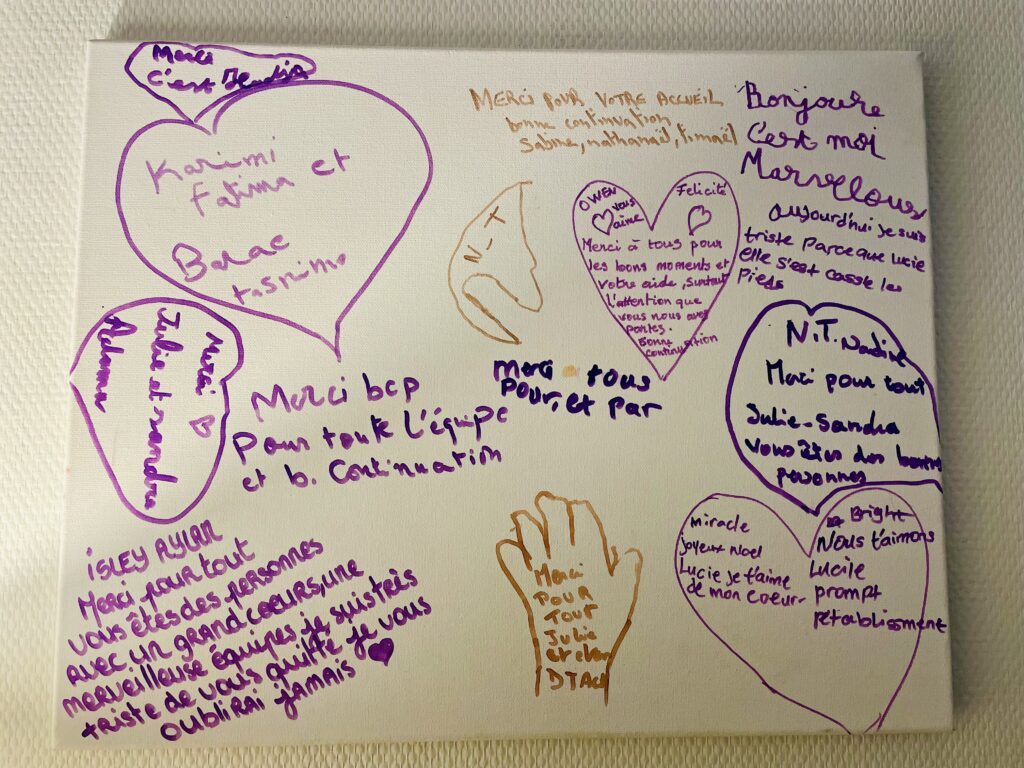 Merci
c'est
Karimi
Fatima et
Barae
tasnime
MERCI POUR VOTRE ACCUEIL
bonne continuation
Sabine, nathanaël,
Bonjoure
C'est moi
Marvellous
aujourd'hui je suis
triste parce que Lucie
elle s'est casse les
pieds
OWEN
vous
aime
Felicité
Merci à tous pour
les bons moments et
votre aide, surtout
l'attention que
vous nous avez
portes.
Bonne
continuation
Merci
Julie et sandra
Merci bcp
pour toute l'équipe
et b. Continuation
Merci tous
pour, et par
N.T. Nadine
Merci pour tout
Julie-Sandra
vous êtes des bonnes
personnes
ISLEY AYLAN
Merci pour tout
vous êtes des personnes
avec un grand coeurs, une
merveilleuse équipes, je suis très
triste de vous quitté je vous
oublirai jamais
Merci
POUR
TOUT
Julie
et
miracle
joyeux noel
Lucie je t'aime
de mon coeur
Bright
Nous t'aimons
Lucile
prompt
rétablissment